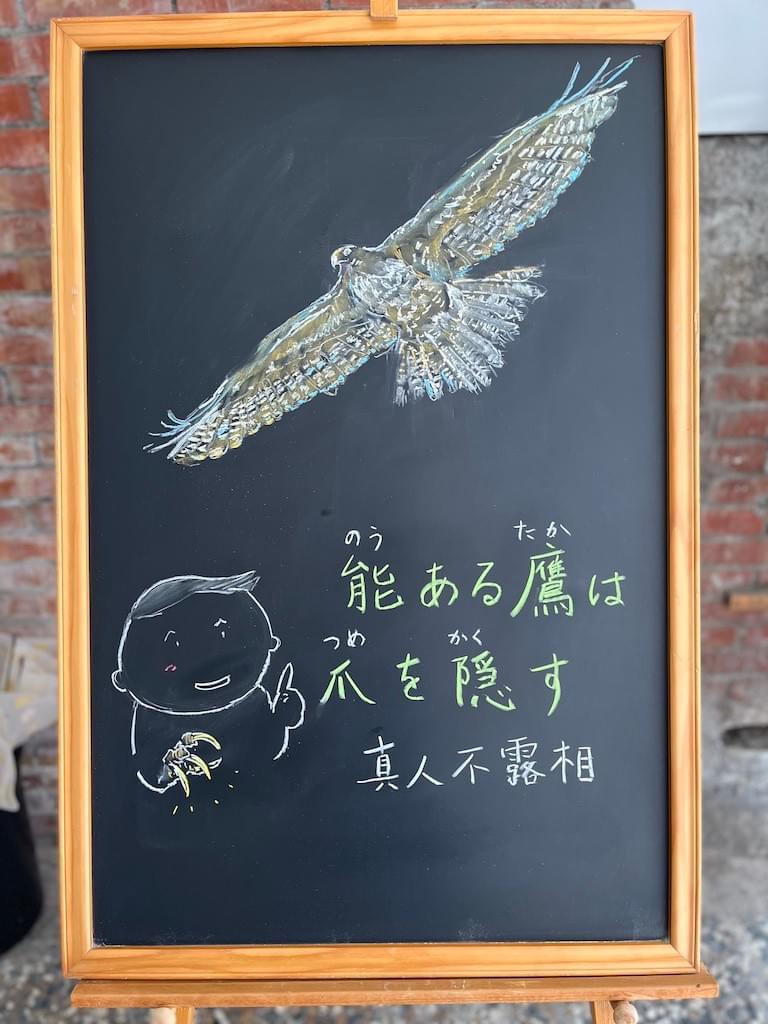 のう たか
能ある鷹は
つめ かく
爪を隠す
真人不露相